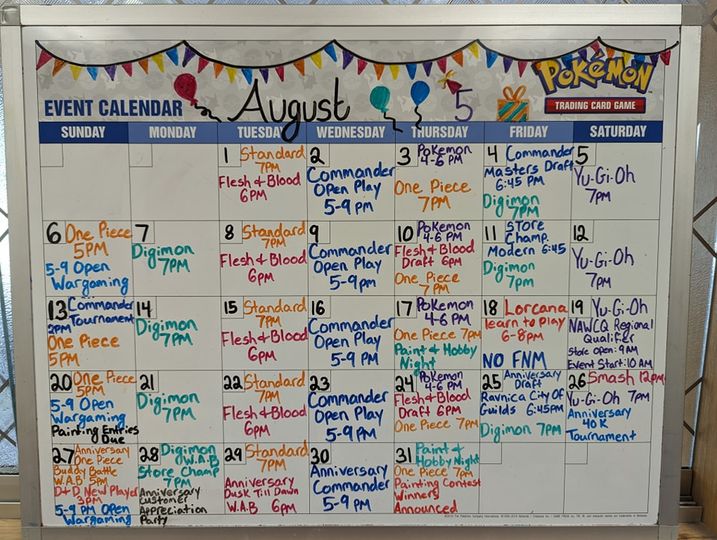 EVENT CALENDAR
August
5
POKéMON
TRADING CARD GAME
SUNDAY
MONDAY
TUESDAY
WEDNESDAY
THURSDAY
FRIDAY
SATURDAY
1 Standard
7PM
Flesh & Blood
6PM
2
Commander
Open Play
5-9 PM
3 Pokemon
4-6 PM
One Piece
7PM
4 Commander
Masters Draft
6:45 PM
Digimon
7PM
5
Yu-Gi-Oh
7PM
6 One Piece
5PM
5-9 Open
Wargaming
7
Digimon
7PM
8 Standard
7PM
Flesh & Blood
6PM
9
Commander
Open Play
5-9 PM
10 Pokemon
4-6 PM
Flesh & Blood
Draft 6PM
One Piece
7PM
11 Store
Champ.
Modern 6:45
Digimon
7PM
12
Yu-Gi-Oh
7PM
13 Commander
Tournament
2PM
One Piece
5PM
14
Digimon
7PM
15 Standard
7PM
Flesh & Blood
6PM
16
Commander
Open Play
5-9 PM
17 Pokemon
4-6 PM
One Piece 7PM
Paint & Hobby
Night
18 Lorcana
learn to play
6-8pm
NO FNM
19 Yu-Gi-Oh
NAWCQ Regional
Qualifier
Store Open: 9AM
Event Start: 10 AM
20 One Piece
5PM
5-9 Open
Wargaming
Painting Entries
Due
21
Digimon
7PM
22 Standard
7PM
Flesh & Blood
6PM
23
Commander
Open Play
5-9 PM
24 Pokemon
4-6 PM
Flesh & Blood
Draft 6PM
One Piece 7PM
25 Anniversary
Draft
Ravnica City Of
Guilds 6:45PM
Digimon 7PM
26 Smash 12PM
Yu-Gi-Oh 7PM
Anniversary
40K
Tournament
27 Anniversary
One Piece
Buddy Battle
W.A.B 5PM
D+D New Player
3PM
5-9 PM Open
Wargaming
28 Digimon
W.A.B
Store Champ
7PM
Anniversary
Customer
Appreciation
Party
29 Standard
7PM
Anniversary
Dusk Till Dawn
W.A.B 6PM
30
Anniversary
Commander
5-9 PM
31 Paint &
Hobby Night
One Piece 7PM
Painting Contest
Winners
Announced